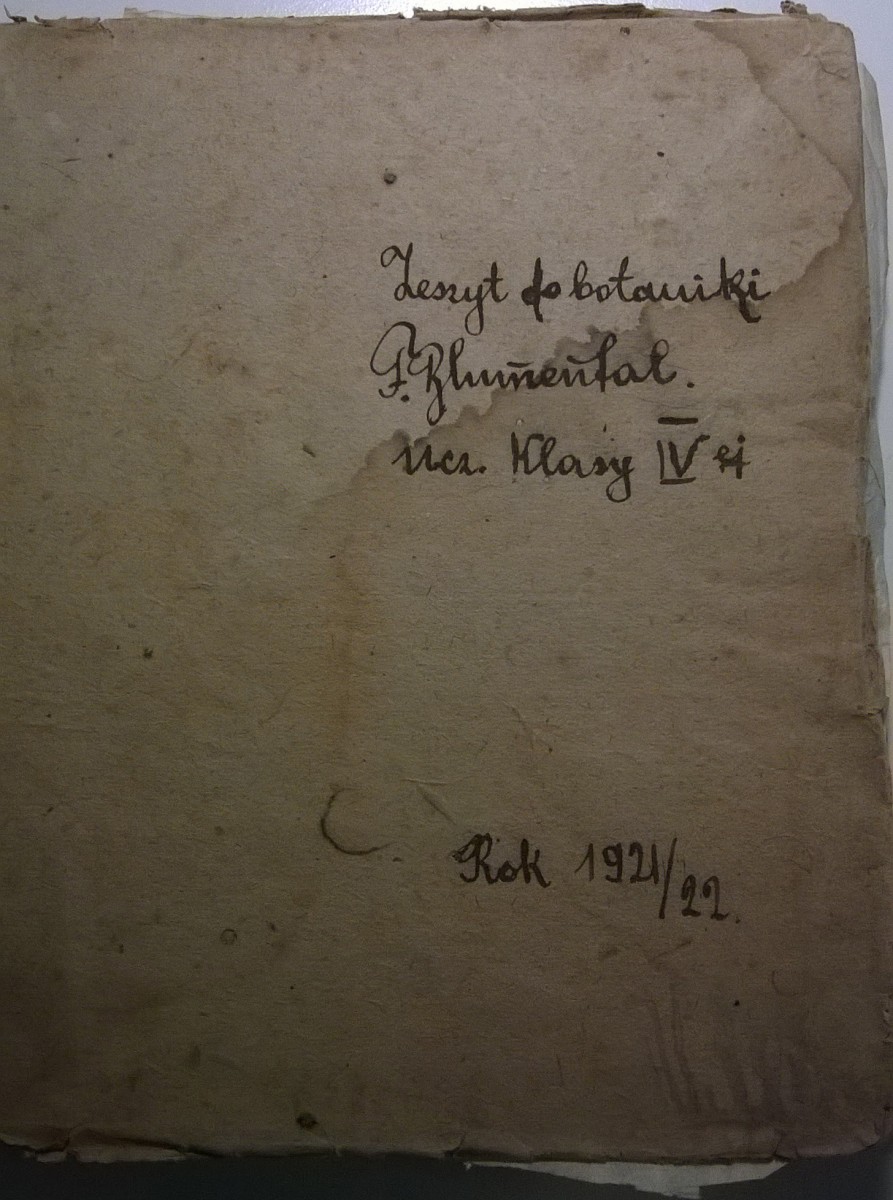 Zeszyt do botaniki
F. Blumental.
Ucz. Klasy IV ej
Rok 1921/22.